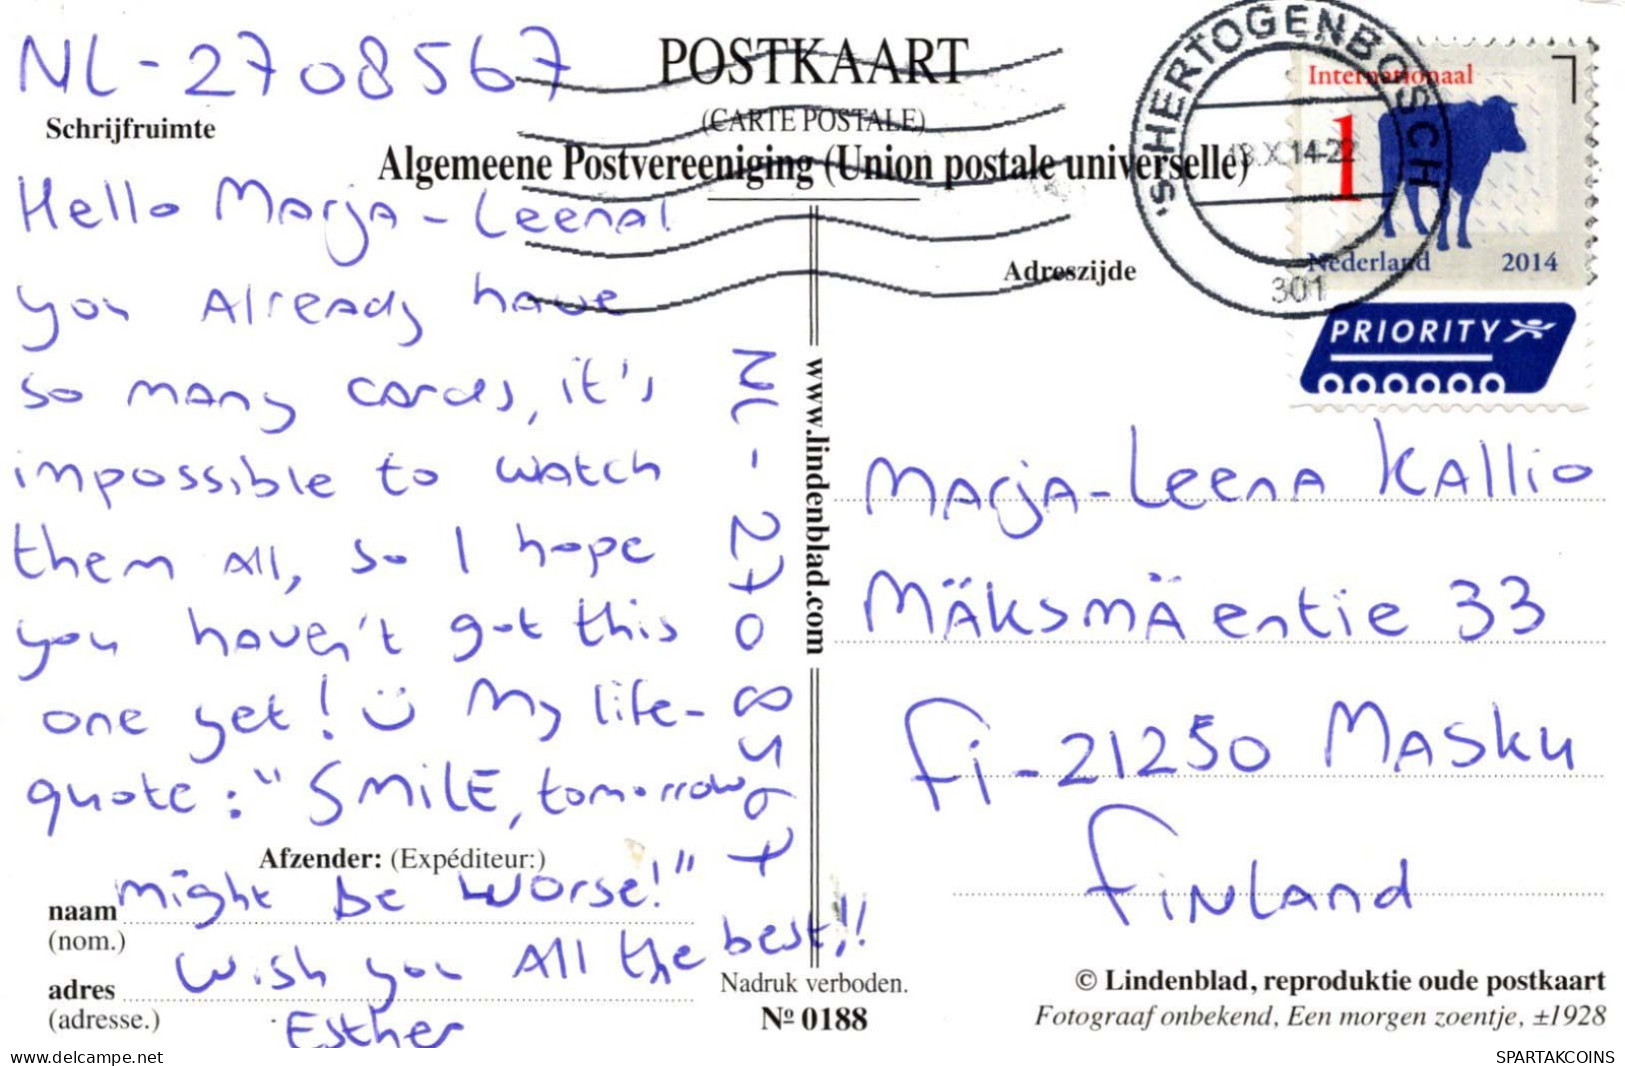 NL-2708567
POSTKAART
(CARTE POSTALE)
Schrijfruimte
Algemeene Postvereeniging (Union postale universelle)
'S HERTOGENBOSCH
X 14-22
301
Internationaal
1
Nederland 2014
PRIORITY
Adreszijde
Hello Marja-Leena!
you Already have
so many cards, it's
impossible to watch
them All, so I hope
you haven't got this
one yet! Ü My life-
quote: "SMILE, tomorrow
might be worse!"
Wish you All the best!!
Esther
NL-2708567
www.lindenblad.com
Marja-Leena Kallio
Mäksmäentie 33
Fi-21250 Masku
Finland
Afzender: (Expéditeur:)
naam
(nom.)
adres
(adresse.)
Nadruk verboden.
Nº 0188
© Lindenblad, reproduktie oude postkaart
Fotograaf onbekend, Een morgen zoentje, ±1928
www.delcampe.net
SPARTAKCOINS